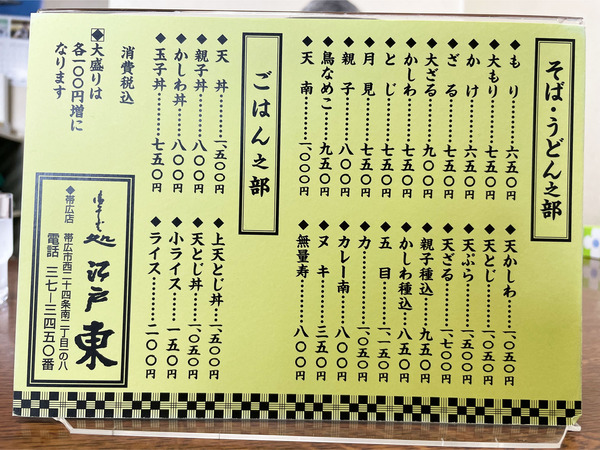 そば・うどん之部
◆もり……六五〇円
◆大もり……七五〇円
◆かけ……六五〇円
◆ざる……七五〇円
◆大ざる……九〇〇円
◆かしわ……七五〇円
◆とじ……七五〇円
◆月見……七五〇円
◆親子……八〇〇円
◆鳥なめこ……九五〇円
◆天南……一、〇〇〇円
◆天かしわ……一、〇五〇円
◆天とじ……一、〇五〇円
◆天ぷら……一、五〇〇円
◆天ざる……一、七〇〇円
◆親子種込……九五〇円
◆かしわ種込……八五〇円
◆五目……一、一五〇円
◆力……一、〇五〇円
◆カレー南……八〇〇円
◆ヌキ……三五〇円
◆無量寿……八〇〇円
ごはん之部
◆天丼……一、五〇〇円
◆親子丼……八〇〇円
◆かしわ丼……八〇〇円
◆玉子丼……七五〇円
◆上天とじ丼……一、五〇〇円
◆天とじ丼……一、〇五〇円
◆小ライス……一五〇円
◆ライス……二〇〇円
消費税込
◆大盛りは
各一〇〇円増に
なります
処 江戸東
◆帯広店 帯広市西二十四条南二丁目一の八
電話 三七ー三四五〇番